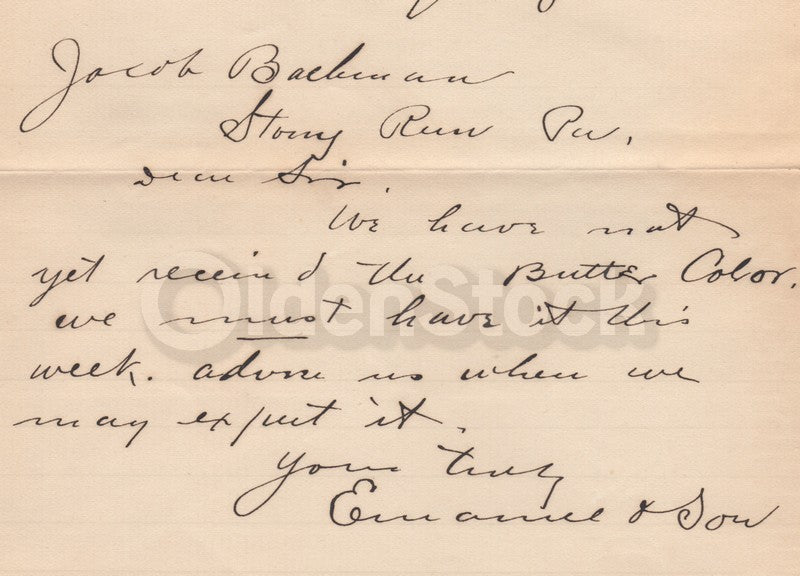 Jacob Bachman
Stony Run Pa.
Dear Sir.
We have not
yet received the Butter Color.
we must have it this
week. advise us when we
may expect it.
Yours truly
Emanuel & Son
OldenStock